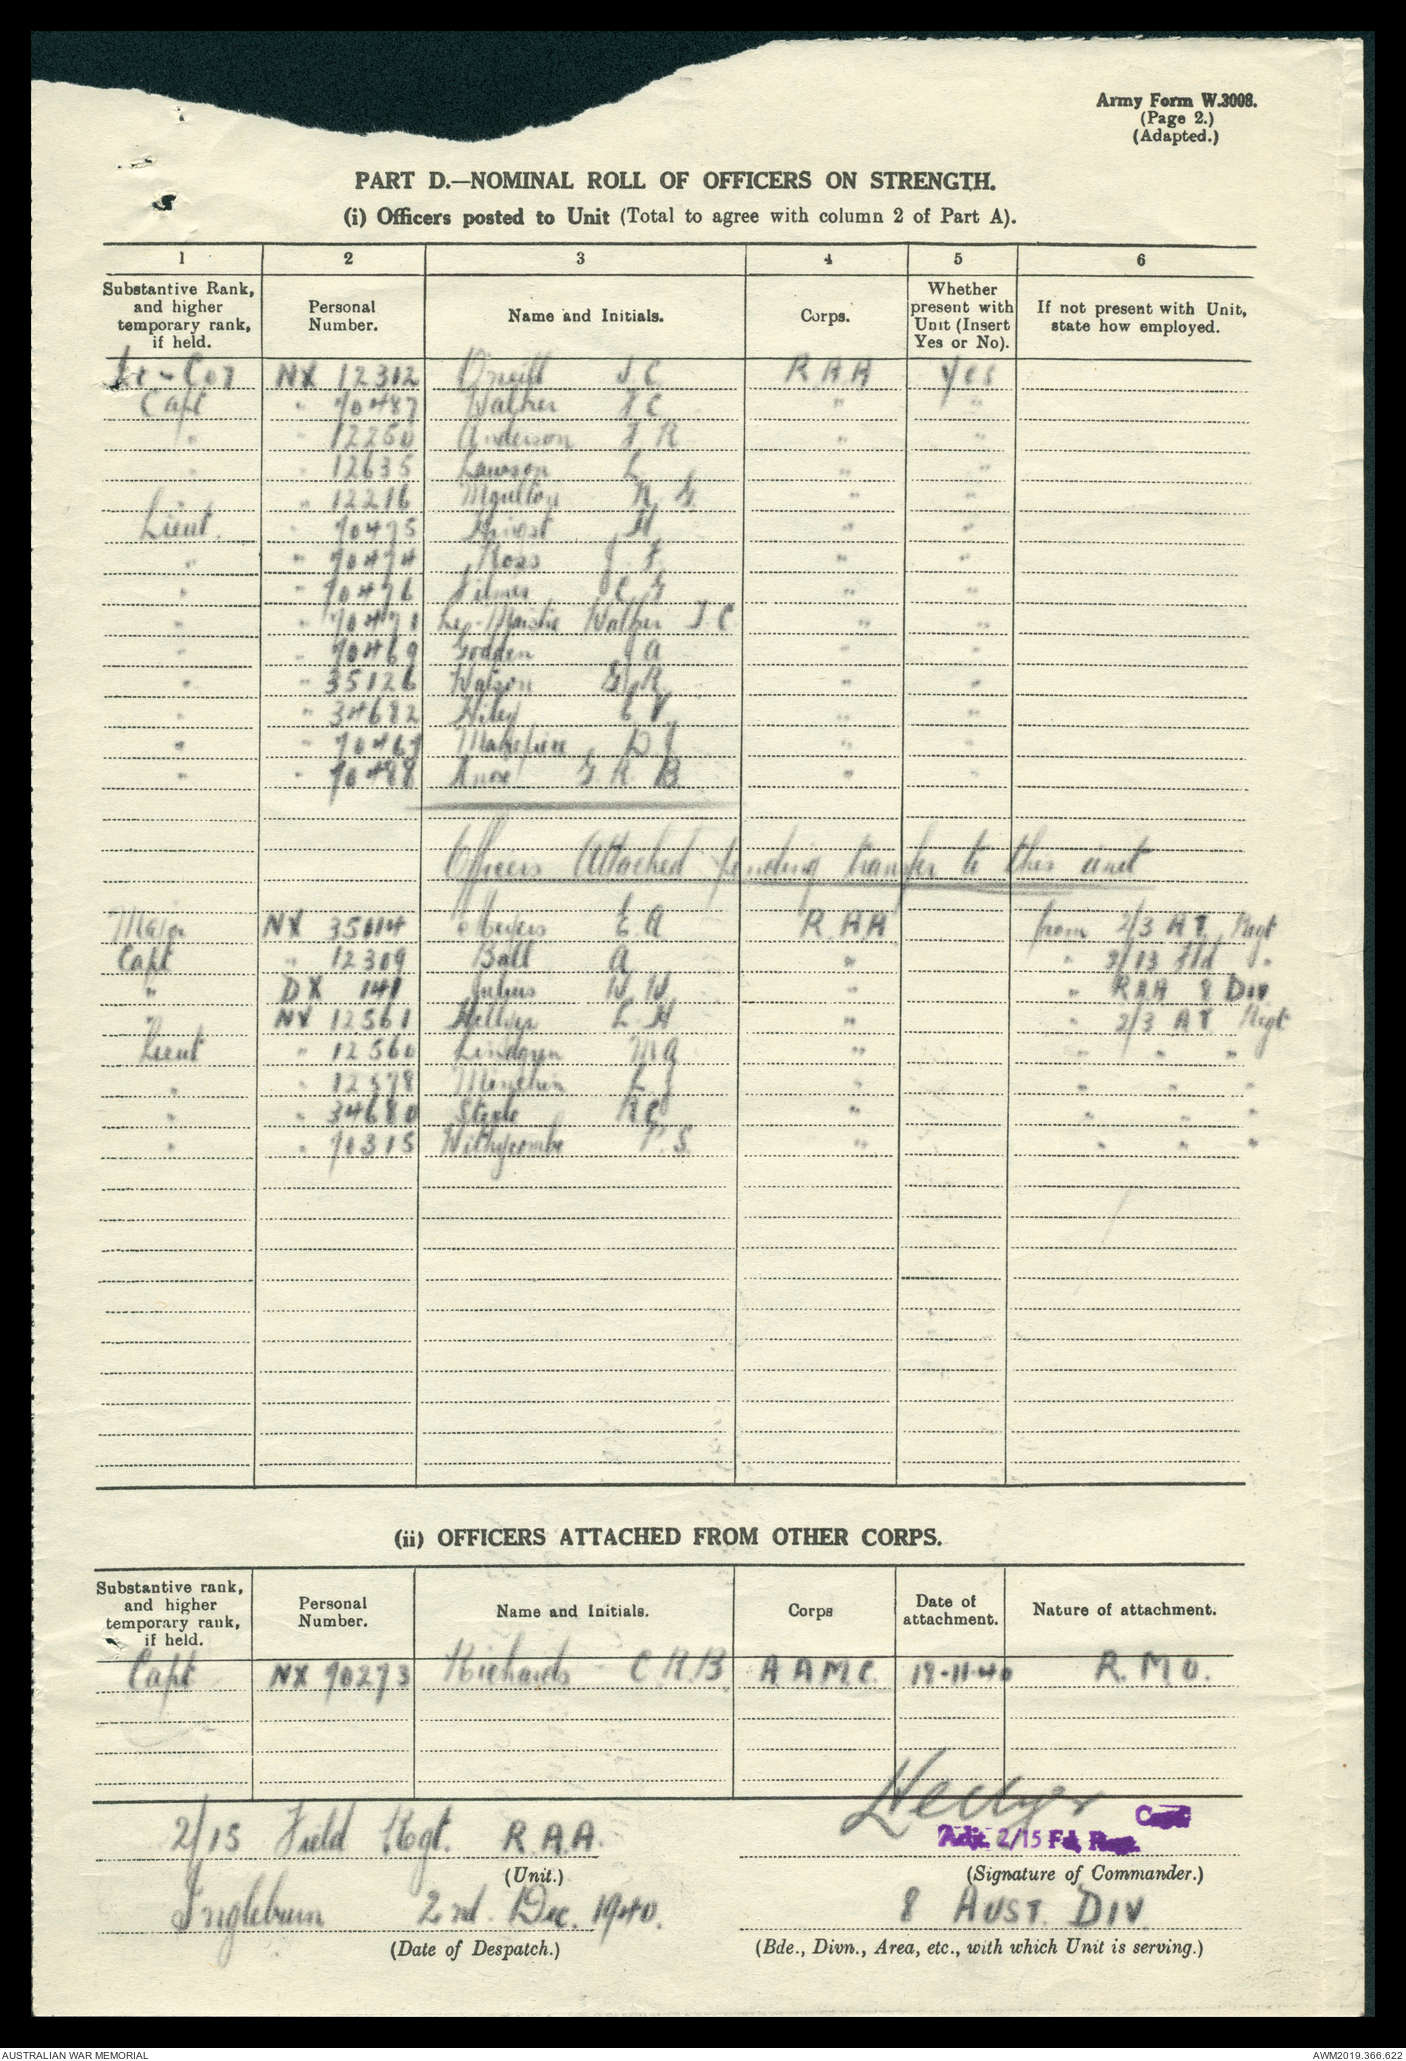 Army Form W.3008.
(Page 2.)
(Adapted.)
PART D.—NOMINAL ROLL OF OFFICERS ON STRENGTH.
(i) Officers posted to Unit (Total to agree with column 2 of Part A).
1 2 3 4 5 6
Substantive Rank, and higher temporary rank, if held. Personal Number. Name and Initials. Corps. Whether present with Unit (Insert Yes or No). If not present with Unit, state how employed.
Lt-Col NX 12312 O'neill J.C. R.A.A Yes
Capt " 70487 Walker F C " "
" " 12250 Anderson J R " "
" " 12635 Lawson L " "
" 12216 Moulton N G " "
Lieut. " 70475 H " "
" " 70474 Ross J F " "
" " 70476 Filmer C G " "
" " 70471 Walker J C " "
" " 70469 Godden J A " "
" " 35126 Watson G R " "
" " 34682 Wiley E V " "
" " 70467 Makepiece D J " "
" " 70488 Knox G R B " "
Officers Attached pending transfer to this unit
Major NX 35014 Meyers E A R.A.A from 2/3 A T Regt
Capt " 12309 Ball A " " 2/13 Fld "
" DX 141 Julius W W " " R.A.A 8 Div
" NX 12561 Hellyer L H " " 2/3 A T Regt
Lieut " 12560 Lindgren M A " " " "
" " 12578 Minchin L J " " " "
" " 34680 Steele R C " " " "
" " 70315 Withycombe P.S. " " " "
(ii) OFFICERS ATTACHED FROM OTHER CORPS.
Substantive rank, and higher temporary rank, if held. Personal Number. Name and Initials. Corps Date of attachment. Nature of attachment.
Capt NX 70273 Richards C.R.B. A A M.C. 18-11-40 R.M.O.
2/15 Field Regt. R.A.A. Capt
Adjt. 2/15 Fd. Regt.
(Unit.) (Signature of Commander.)
Ingleburn 2nd. Dec. 1940. 8 AUST. DIV.
(Date of Despatch.) (Bde., Divn., Area, etc., with which Unit is serving.)
AUSTRALIAN WAR MEMORIAL AWM2019.366.622